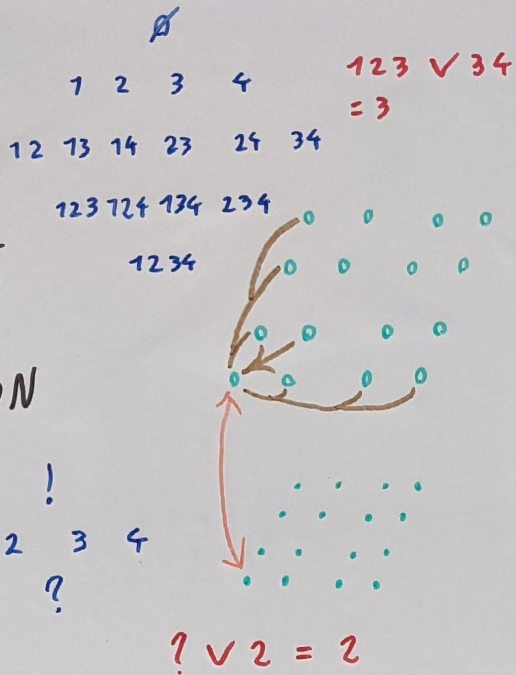 ∅
1 2 3 4
12 13 14 23 24 34
123 124 134 234
1234
123 ∨ 34
= 3
N
!
2 3 4
?
? ∨ 2 = 2